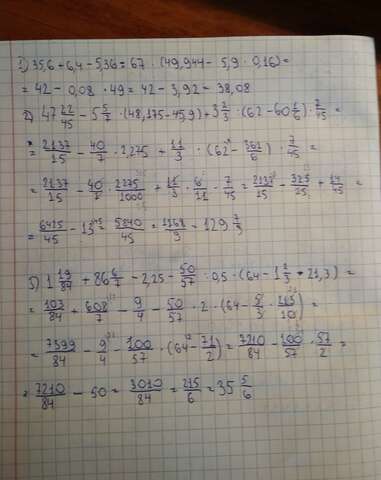 1) 35,6 + 6,4 - 5,36 = 67 · (49,944 - 5,9 · 0,16) =
= 42 - 0,08 · 49 = 42 - 3,92 = 38,08
2) 47 22/45 - 5 5/7 · (48,175 - 45,9) + 3 2/3 · (62 - 60 1/6) · 7/45 =
= 2137/15 - 40/7 · 2,275 + 11/3 · (62 - 362/6) · 7/45 =
= 2137/15 - 40/7 · 2275/1000 + 11/3 · 6/11 · 7/45 = 2137/15 - 325/25 + 14/45 =
= 6425/45 - 13 = 5840/45 = 1168/9 = 129 7/9
3) 1 19/84 + 86 6/7 - 2,25 - 50/57 : 0,5 · (64 - 1 2/3 · 21,3) =
= 103/84 + 608/7 - 9/4 - 50/57 · 2 · (64 - 5/3 · 213/10) =
= 7399/84 - 9/4 - 100/57 · (64 - 71/2) = 7210/84 - 100/57 · 57/2 =
= 7210/84 - 50 = 3010/84 = 215/6 = 35 5/6